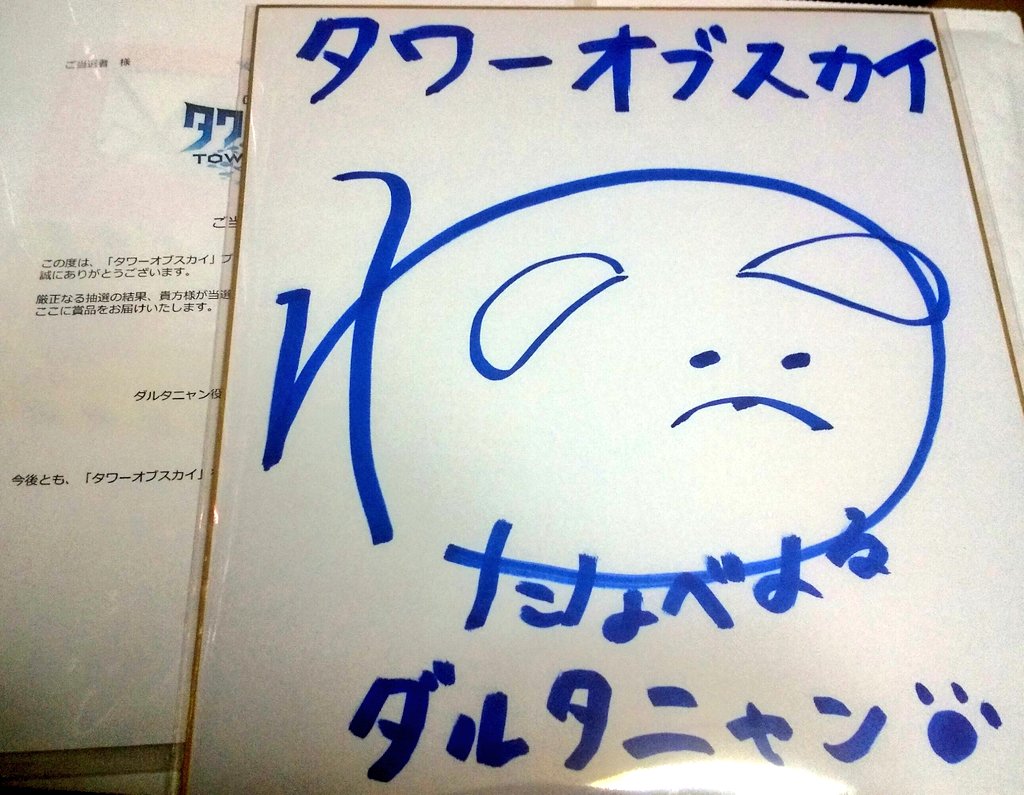 ご当選者 様
タワ
TOW
ご当
この度は、「タワーオブスカイ」プ
誠にありがとうございます。
厳正なる抽選の結果、貴方様が当選
ここに賞品をお届けいたします。
ダルタニャン役
今後とも、「タワーオブスカイ」
タワーオブスカイ
ダルタニャン